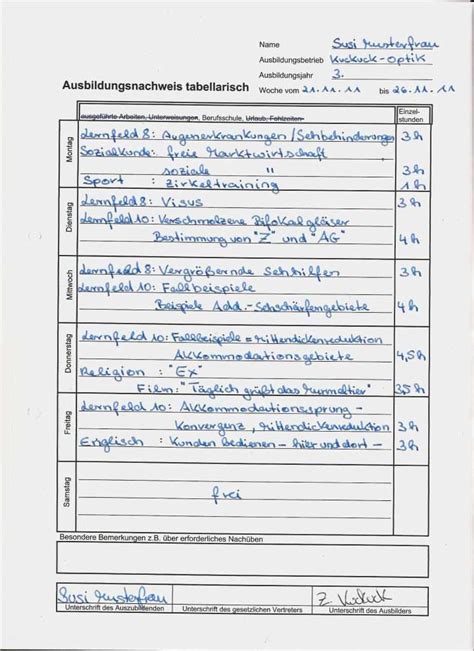 Name Susi Musterfrau
Ausbildungsbetrieb Kuckuck-Optik
Ausbildungsjahr 3.
Ausbildungsnachweis tabellarisch Woche vom 21.11.11 bis 26.11.11
ausgeführte Arbeiten, Unterweisungen, Berufsschule, Urlaub, Fehlzeiten Einzel-
stunden
Montag
Lernfeld 8: Augenerkrankungen/Sehbehinderungen 3h
Sozialkunde: freie Marktwirtschaft
soziale " 3h
Sport : Zirkeltraining 1h
Dienstag
Lernfeld 8: Visus 3h
Lernfeld 10: Verschmolzene Bifokalgläser
Bestimmung von "Z" und "AG" 4h
Mittwoch
Lernfeld 8: Vergrößernde Sehhilfen 3h
Lernfeld 10: Fallbeispiele
Beispiele Add.-Sehschärfengebiete 4h
Donnerstag
Lernfeld 10: Fallbeispiele = Mittendickenreduktion
Akkommodationsgebiete 4,5h
Religion : "Ex"
Film: "Täglich grüßt das Murmeltier" 3,5h
Freitag
Lernfeld 10: Akkommodationssprung-
Konvergenz, Mittendickenreduktion 3h
Englisch : Kunden bedienen - hier und dort - 3h
Samstag
frei
Besondere Bemerkungen z.B. über erforderliches Nachüben
Susi Musterfrau Z. Kuckuck
Unterschrift des Auszubildenden Unterschrift des gesetzlichen Vertreters Unterschrift des Ausbilders